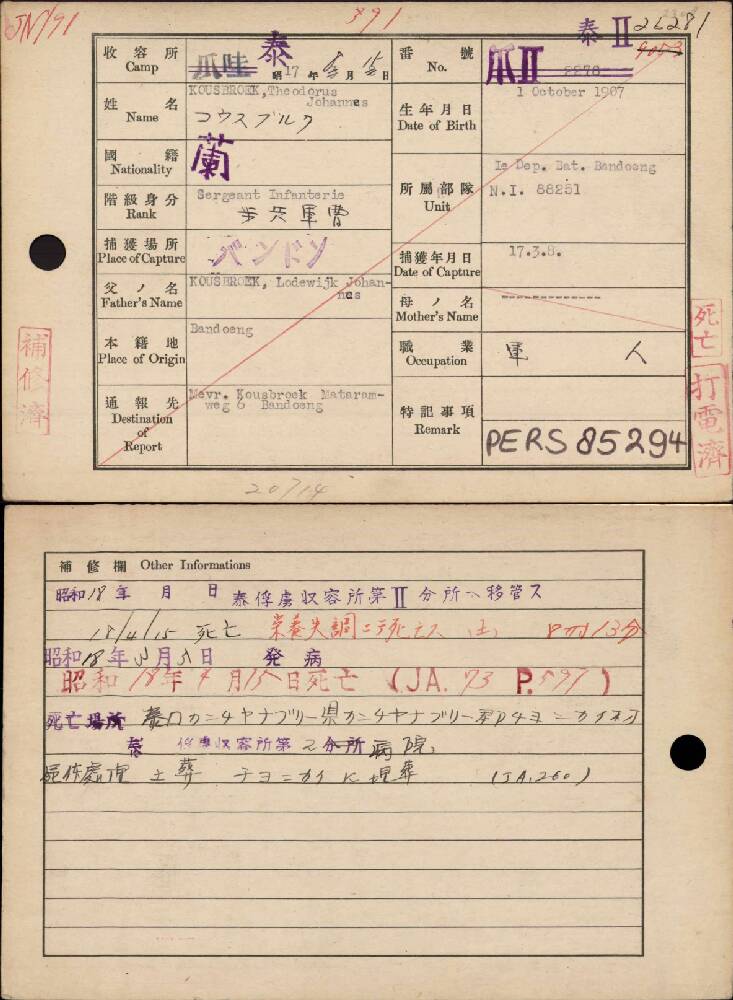 JN/91
391
泰 II 26281
収容所 Camp
爪哇 泰
昭17年8月15日
番號 No.
爪II
2278
9053
姓名 Name
KOUSBROEK, Theodorus
Johannes
コウスブルク
生年月日 Date of Birth
1 October 1907
國籍 Nationality
蘭
階級身分 Rank
Sergeant Infanterie
歩兵軍曹
所屬部隊 Unit
Ie Dep. Bat. Bandoeng
N.I. 88251
捕獲場所 Place of Capture
バンドン
捕獲年月日 Date of Capture
17.3.8.
父ノ名 Father's Name
KOUSBROEK, Lodewijk Johan-
nes
母ノ名 Mother's Name
-------------
本籍地 Place of Origin
Bandoeng
職業 Occupation
軍人
通報先 Destination of Report
Mevr. Kousbroek Mataram-
weg 6 Bandoeng
特記事項 Remark
PERS 85294
補修済
死亡
打電濟
20714
補修欄 Other Informations
昭和18年 月 日 泰俘虜収容所第II分所ヘ移管ス
18/4/15 死亡 栄養失調ニテ死亡ス
昭和18年 月 日 発病
昭和18年4月15日死亡 (JA. 73 P.597)
死亡場所 泰国カニチヤナブリー県カニチヤナブリー郡
泰俘虜収容所第2分所病院
屍体處理 土葬 ニ埋葬 (JA.260)